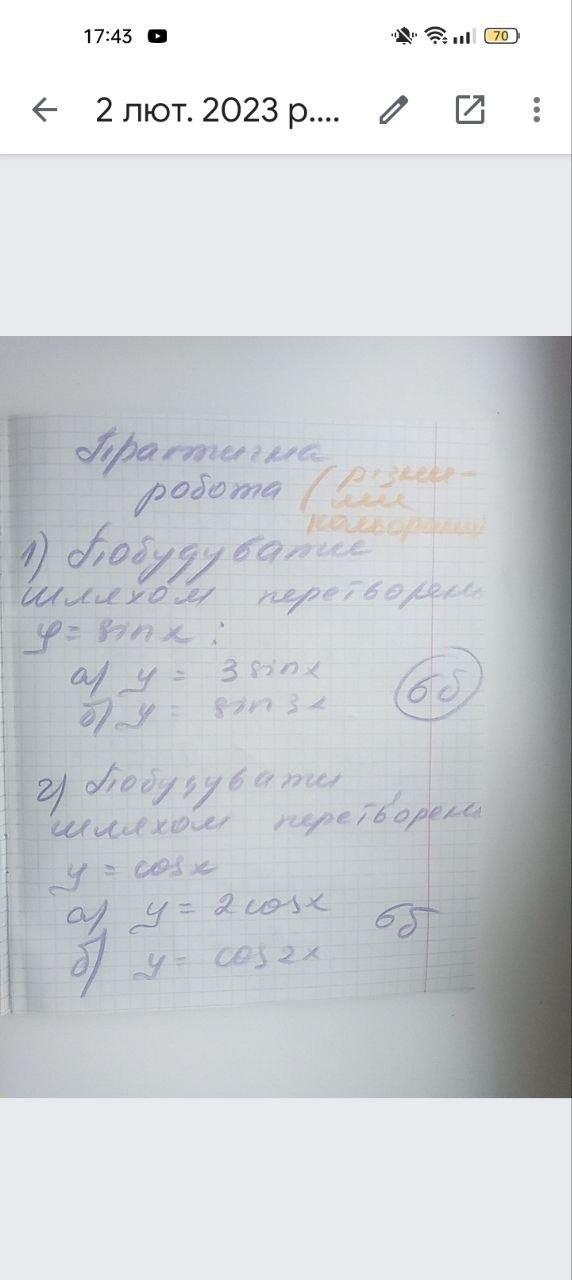 17:43
70
2 лют. 2023 р....
Практична
робота (різни-
ми
кольорами
1) Побудувати
шляхом перетворень
y = sin x :
а) y = 3 sin x
б) y = sin 3x
6б
2) Побудувати
шляхом перетворень
y = cos x
а) y = 2 cos x
6б
б) y = cos 2x